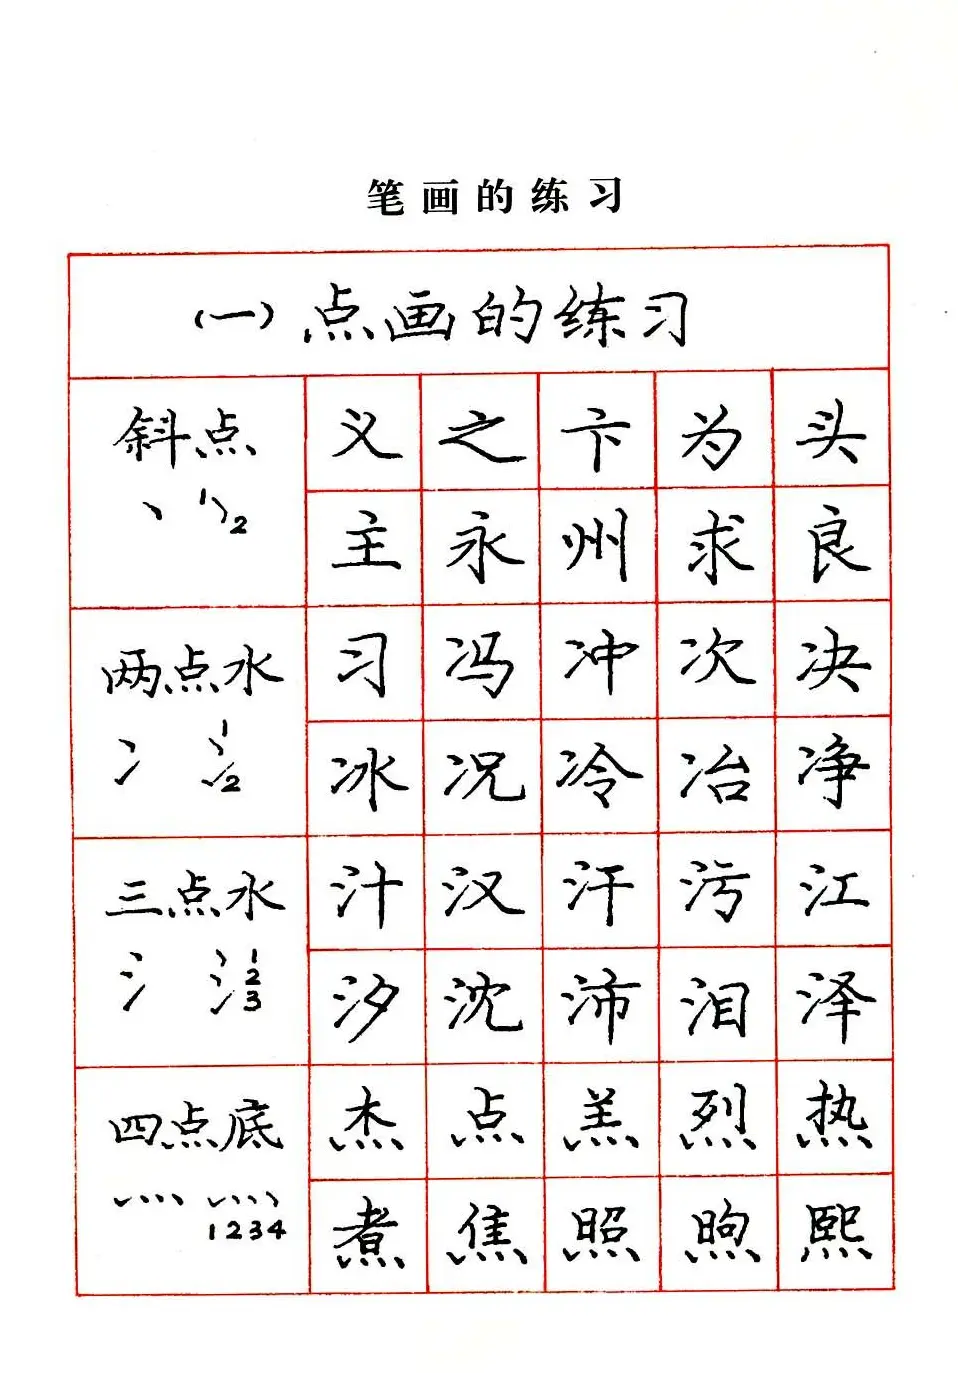 笔画的练习
(一)点画的练习
斜点
丶 1 2
义 之 卞 为 头
主 永 州 求 良
两点水
冫 1 2
习 冯 冲 次 决
冰 况 冷 冶 净
三点水
氵 1 2 3
汁 汉 汗 污 江
汐 沈 沛 泪 泽
四点底
灬 1234
杰 点 羔 烈 热
煮 焦 照 煦 熙